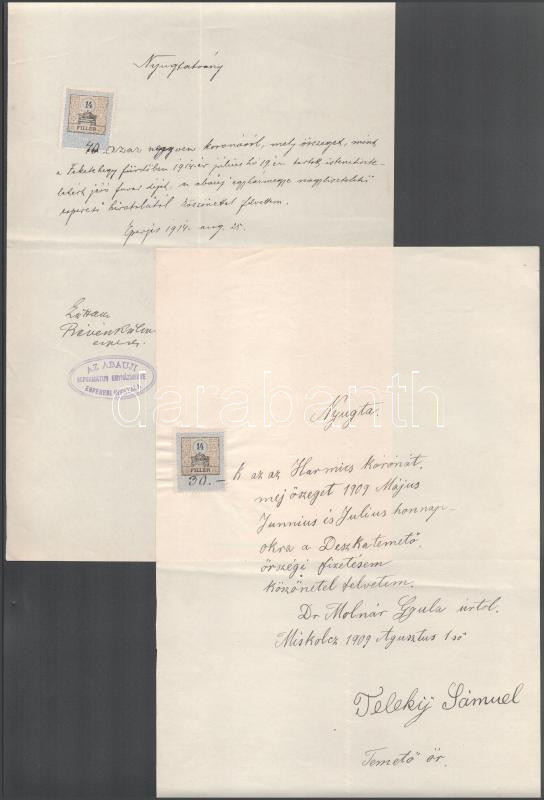 Nyugtatvány
14
FILLÉR
40. azaz negyven koronáról, mely összeget, mint
a Feketehegy fürdőben 1914 év július hó 19.én tartott istentisztele-
tekért járó fuvar díját, az abauji egyházmegye nagytiszteletű
esperesi hivatalától köszönettel felvettem.
Eperjes 1914. aug. 25.
Láttam
Révész Kálmán
esperes.
AZ ABAUJI
REFORMÁTUS EGYHÁZMEGYE
ESPERESI HIVATALA
darabanth
Nyugta.
14
FILLÉR
30.– K az az Harmics koronát,
mej őszeget 1909 Május
Junnius és Julius honnap-
okra a Deszkatemető
őrségi fizetésem
köszönetel felvetem.
Dr Molnár Gyula úrtol.
Miskolcz 1909 Agusztus 1ső
Telekij Sámuel
Temető őr.